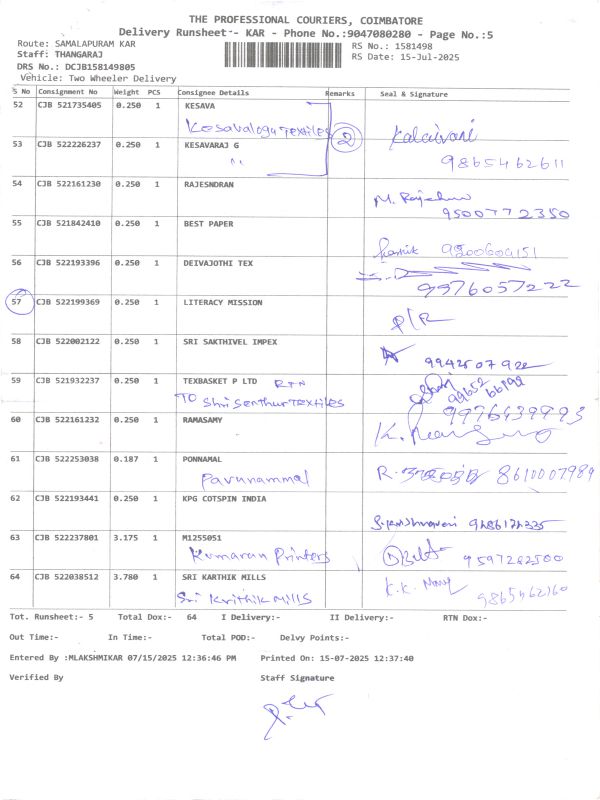 THE PROFESSIONAL COURIERS, COIMBATORE
Delivery Runsheet - KAR - Phone No.:9047080280 - Page No.:5
Route: SAMALAPURAM KAR RS No.: 1581498
Staff: THANGARAJ RS Date: 15-Jul-2025
DRS No.: DCJB158149805
Vehicle: Two Wheeler Delivery
S No Consignment No Weight PCS Consignee Details Remarks Seal & Signature
52 CJB 521735405 0.250 1 KESAVA
Kesavalogu Textiles 2 Kalaivani
53 CJB 522226237 0.250 1 KESAVARAJ G
" 9865462611
54 CJB 522161230 0.250 1 RAJESNDRAN
M. Rajendran
9500772350
55 CJB 521842410 0.250 1 BEST PAPER
9500604151
56 CJB 522193396 0.250 1 DEIVAJOTHI TEX
9976057222
57 CJB 522199369 0.250 1 LITERACY MISSION
58 CJB 522002122 0.250 1 SRI SAKTHIVEL IMPEX
9942507922
59 CJB 521932237 0.250 1 TEXBASKET P LTD RTN
TO Shri Senthur Textiles 99652 66192
9976439993
60 CJB 522161232 0.250 1 RAMASAMY
61 CJB 522253038 0.187 1 PONNAMAL
Pavunammal 8610007989
62 CJB 522193441 0.250 1 KPG COTSPIN INDIA
63 CJB 522237801 3.175 1 M1255051
Kumaran Printers 9597282500
64 CJB 522038512 3.780 1 SRI KARTHIK MILLS K.K. Mani
Sri Krithik Mills 9865462160
Tot. Runsheet:- 5 Total Dox:- 64 I Delivery:- II Delivery:- RTN Dox:-
Out Time:- In Time:- Total POD:- Delvy Points:-
Entered By :MLAKSHMIKAR 07/15/2025 12:36:46 PM Printed On: 15-07-2025 12:37:40
Verified By Staff Signature